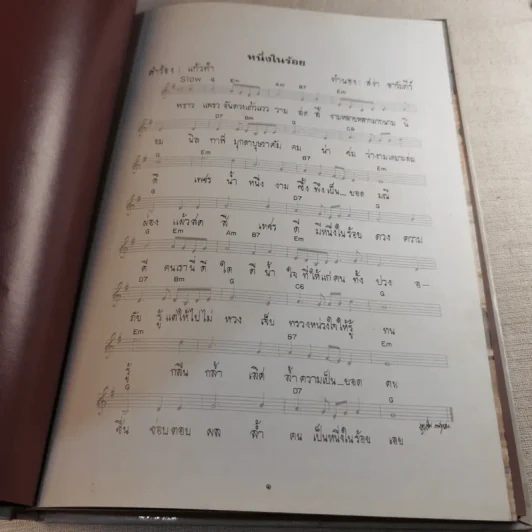 หนึ่งในร้อย
คำร้อง : แก้วฟ้า
ทำนอง : สง่า อารัมภีร์
Slow 4 Em Am B7 Em
พราว แพรว อันดวงแก้วแวว วาม สด สี งามหลายหลากมากนาม นิ
D7 Bm G C6
ยม นิล กาฬ มุกดาบุษราคัม คม น่า ชม ว่างามเหมาะสม
Em B7 Em
ดี เพชร น้ำ หนึ่ง งาม ซึ้ง พึงเป็น_ยอด มณี
G D7 G
ผ่อง แผ้วสด สี เพชร ดี มีหนึ่งในร้อย ดวง ความ
G Em Am B7 Em
ดี คนเรานี่ ดี ใด ดี น้ำ ใจ ที่ให้แก่ คน ทั้ง ปวง อ-
D7 Bm G C6
ภัย รู้ แต่ให้ไปไม่ หวง เจ็บ ทรวงหน่วงใจให้รู้ ทน
Em B7 Em
รู้ กลืน กล้ำ เลิศ ล้ำ ความเป็น_ยอด คน
G D7 G
ชื่น ชอบ ตอบ ผล ล้ำ คน เป็นหนึ่งในร้อย เอย
๑